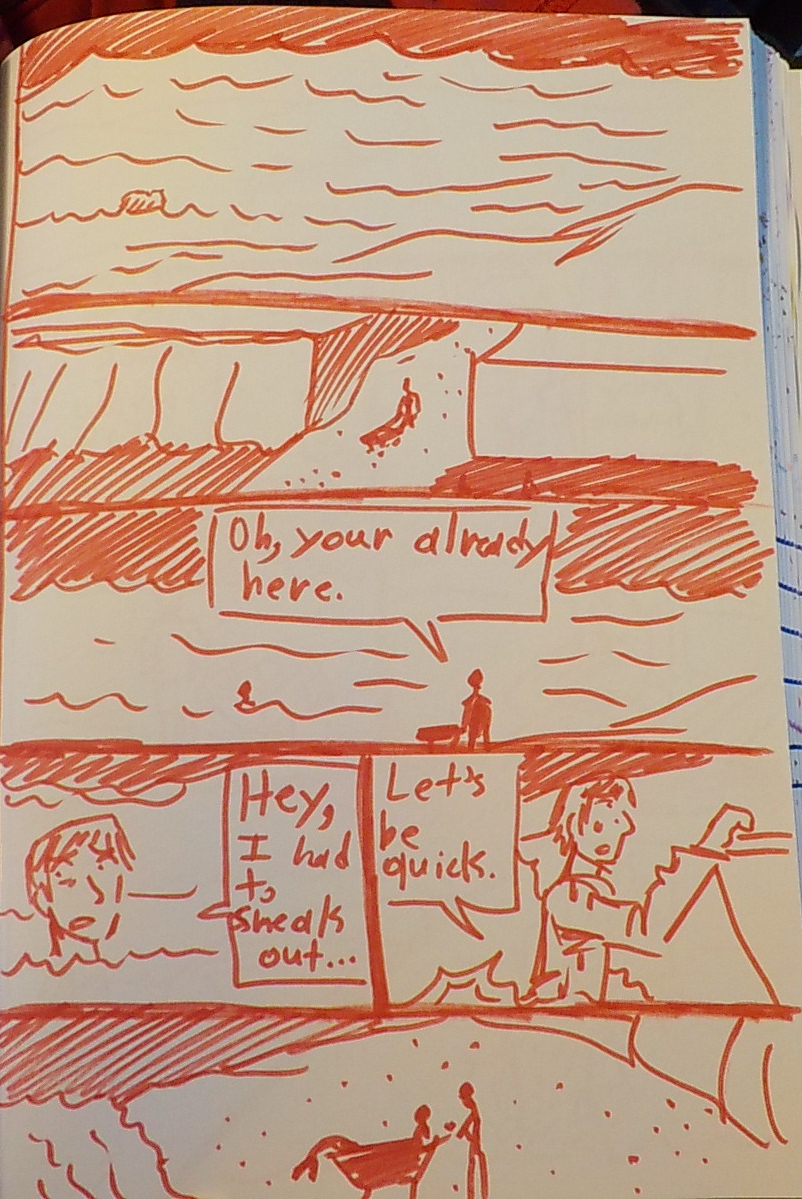 Oh, your already
here.
Hey,
I had
to
sneak
out...
Let's
be
quick.